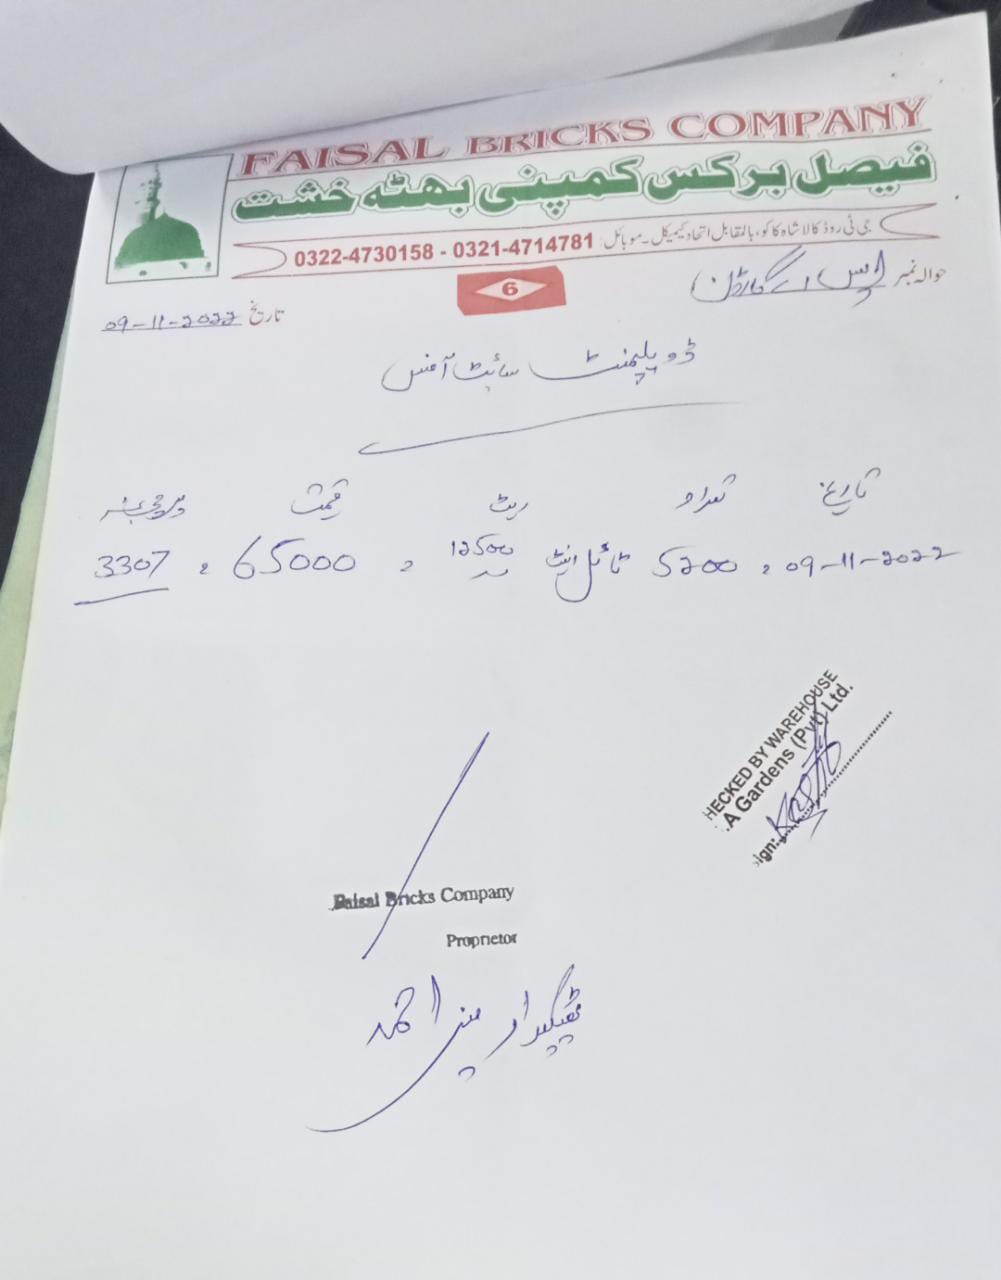 FAISAL BRICKS COMPANY
فیصل برکس کمپنی بھٹہ خشت
جی ٹی روڈ کالا شاہ کاکو، بالمقابل اتحاد کیمیکل۔ موبائل: 0321-4714781 - 0322-4730158
6
حوالہ نمبر ایس اے گارڈن
تاریخ 09-11-2022
ڈویلپمنٹ سائیٹ آفس
تاریخ تعداد ریٹ قیمت
09-11-2022 , 5200 ٹائل اینٹ 12500 , 65000 , 3307
HECKED BY WAREHOUSE
.A Gardens (Pvt) Ltd.
ign:
Faisal Bricks Company
Proprietor
ٹھیکیدار احمد